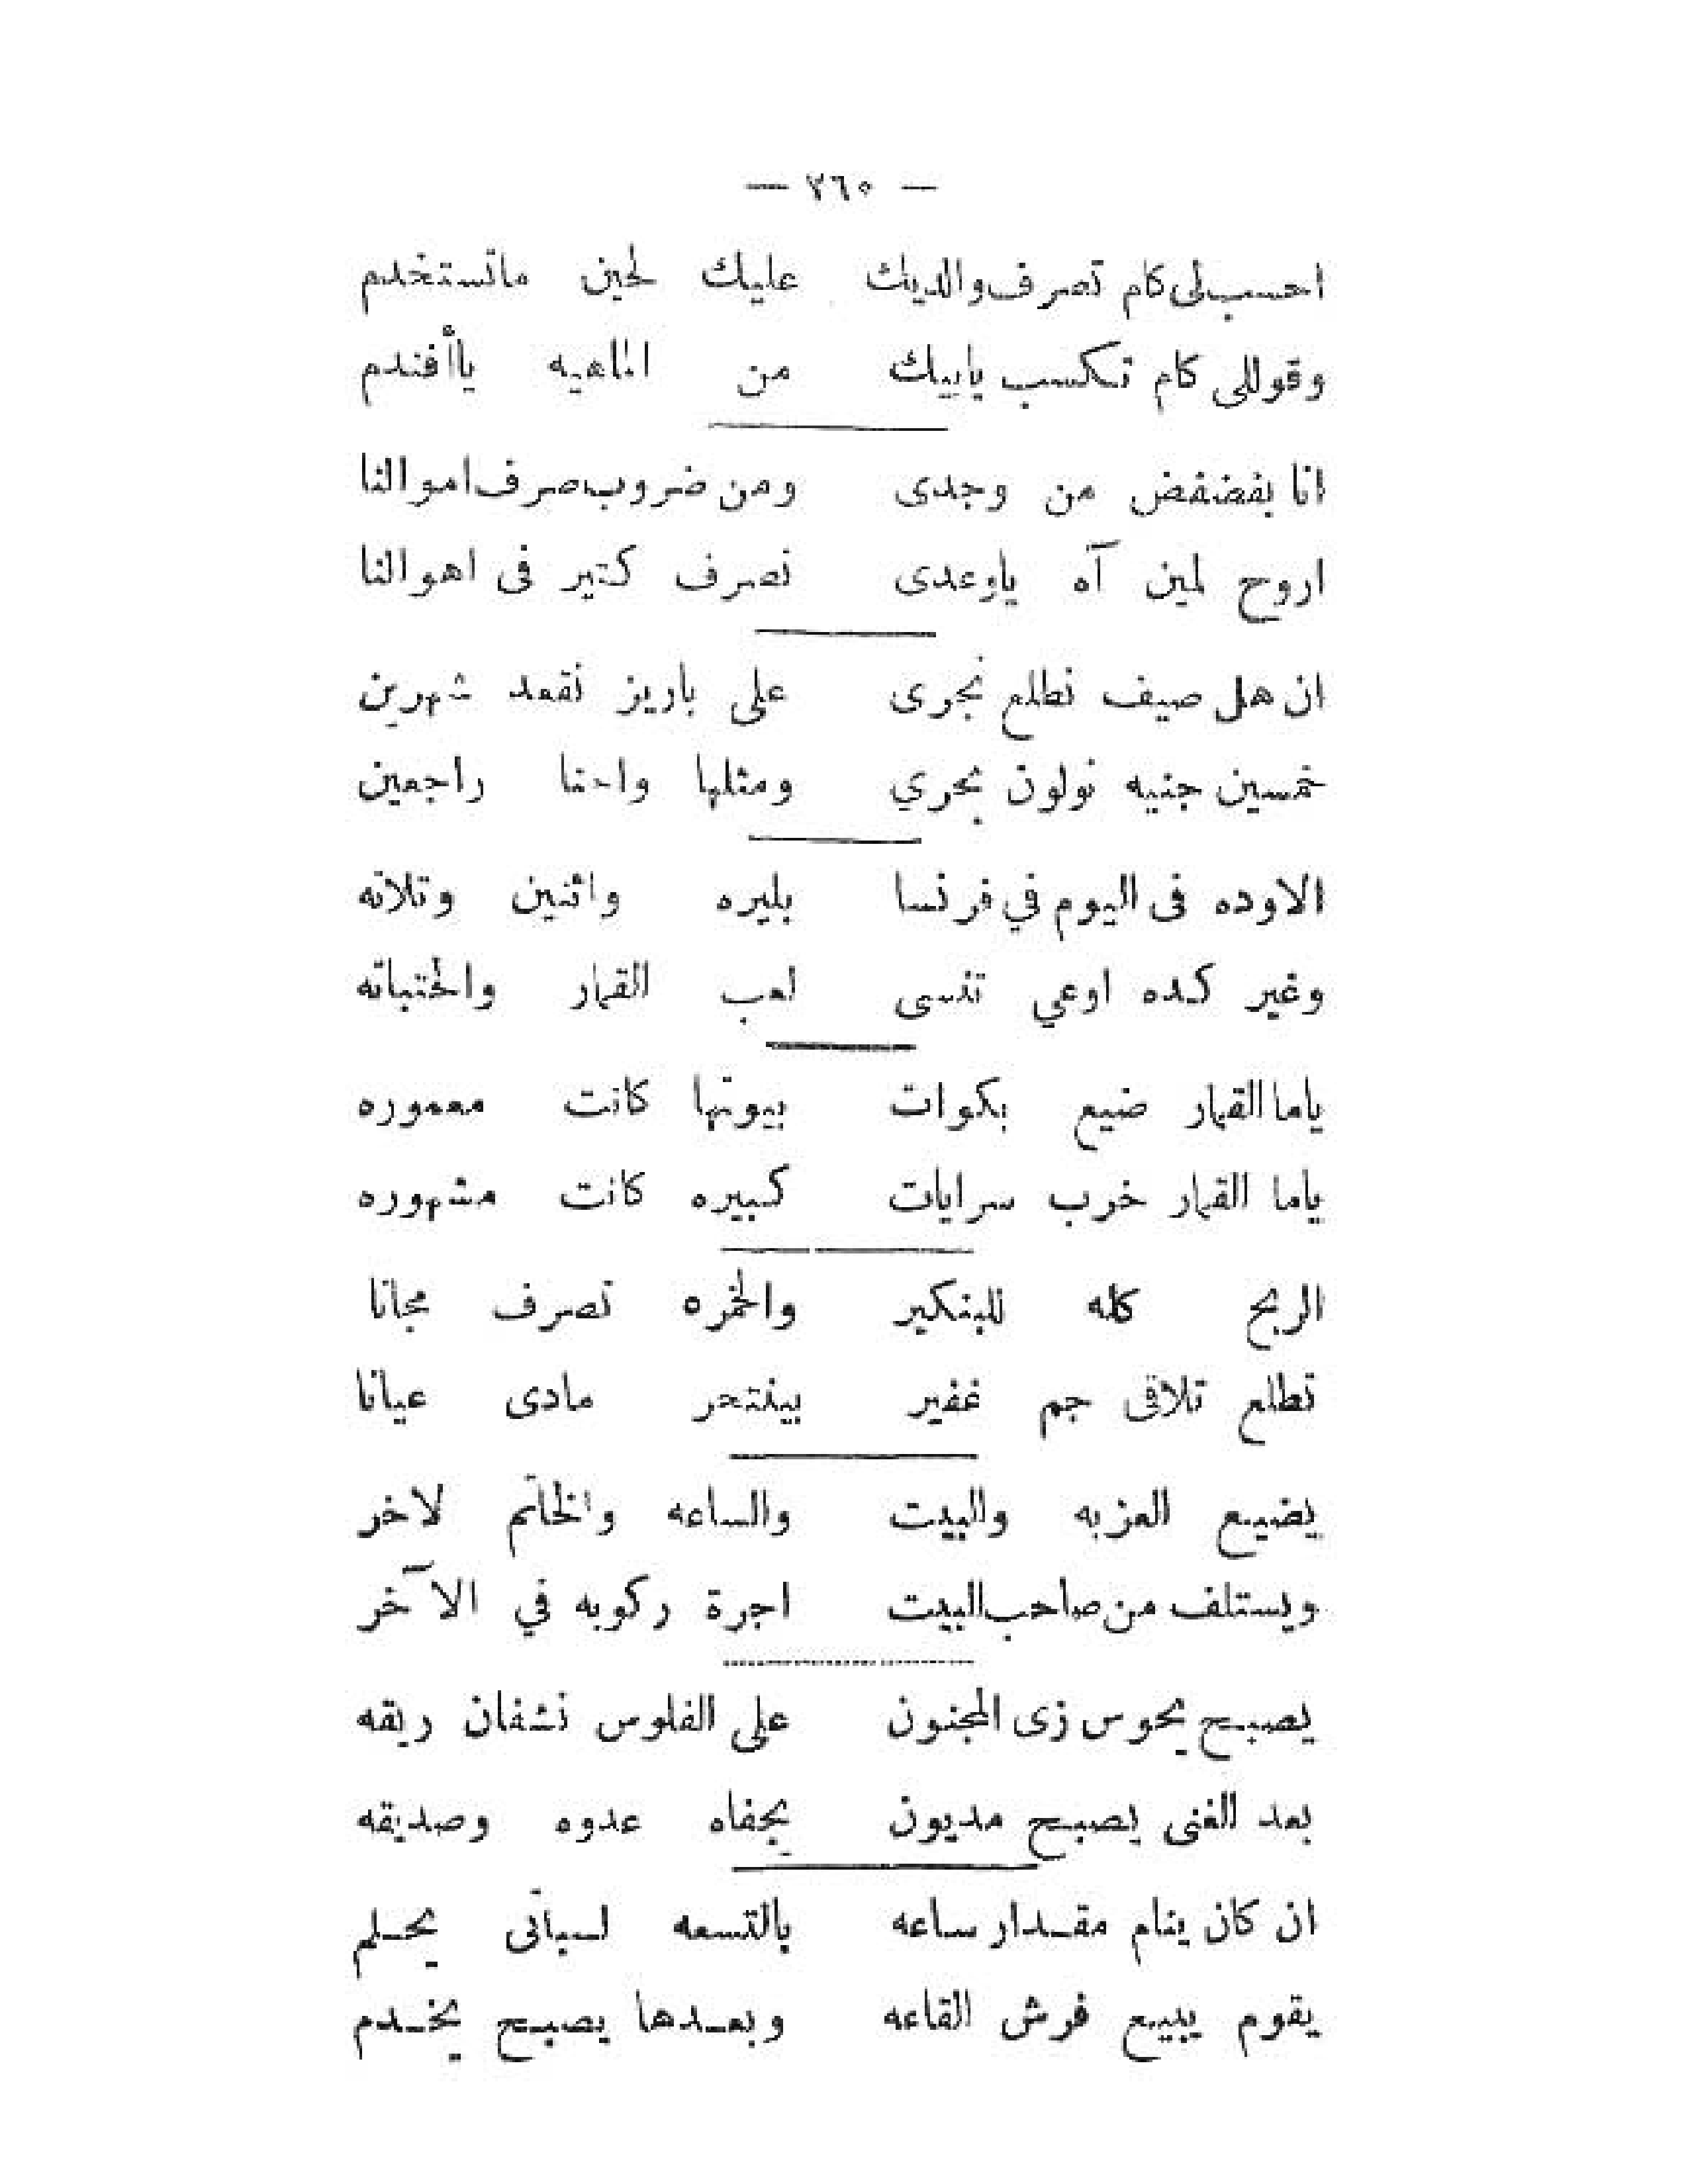 — ٢٦٠ —
احسب لى كام تصرف والديك عليك لحين ماتستخدم
وقوللى كام تكسب يابيك من الماهيه ياأفندم
انا بفضفض من وجدى ومن ضروب صرف اموالنا
اروح لمين آه ياوعدى نصرف كتير فى اهوالنا
ان هل صيف نطلع نجرى على باريز نقعد شهرين
خمسين جنيه نولون بحري ومثلها واحنا راجعين
الاوده فى اليوم في فرنسا بليره واثنين وتلاته
وغير كده اوعي تنسى لعب القمار والختباته
ياما القمار ضيع بكوات بيوتها كانت معموره
ياما القمار خرب سرايات كبيره كانت مشهوره
الربح كله للبنكير والخمره تصرف مجانا
تطلع تلاقى جم غفير بينتحر مادى عيانا
يضيع العزبه والبيت والساعه والخاتم لاخر
ويستلف من صاحب البيت اجرة ركوبه في الآخر
يصبح يحوس زى المجنون على الفلوس نشفان ريقه
بعد الغنى يصبح مديون يجفاه عدوه وصديقه
ان كان ينام مقدار ساعه بالتسعه لسباتى يحلم
يقوم يبيع فرش القاعه وبعدها يصبح يخدم